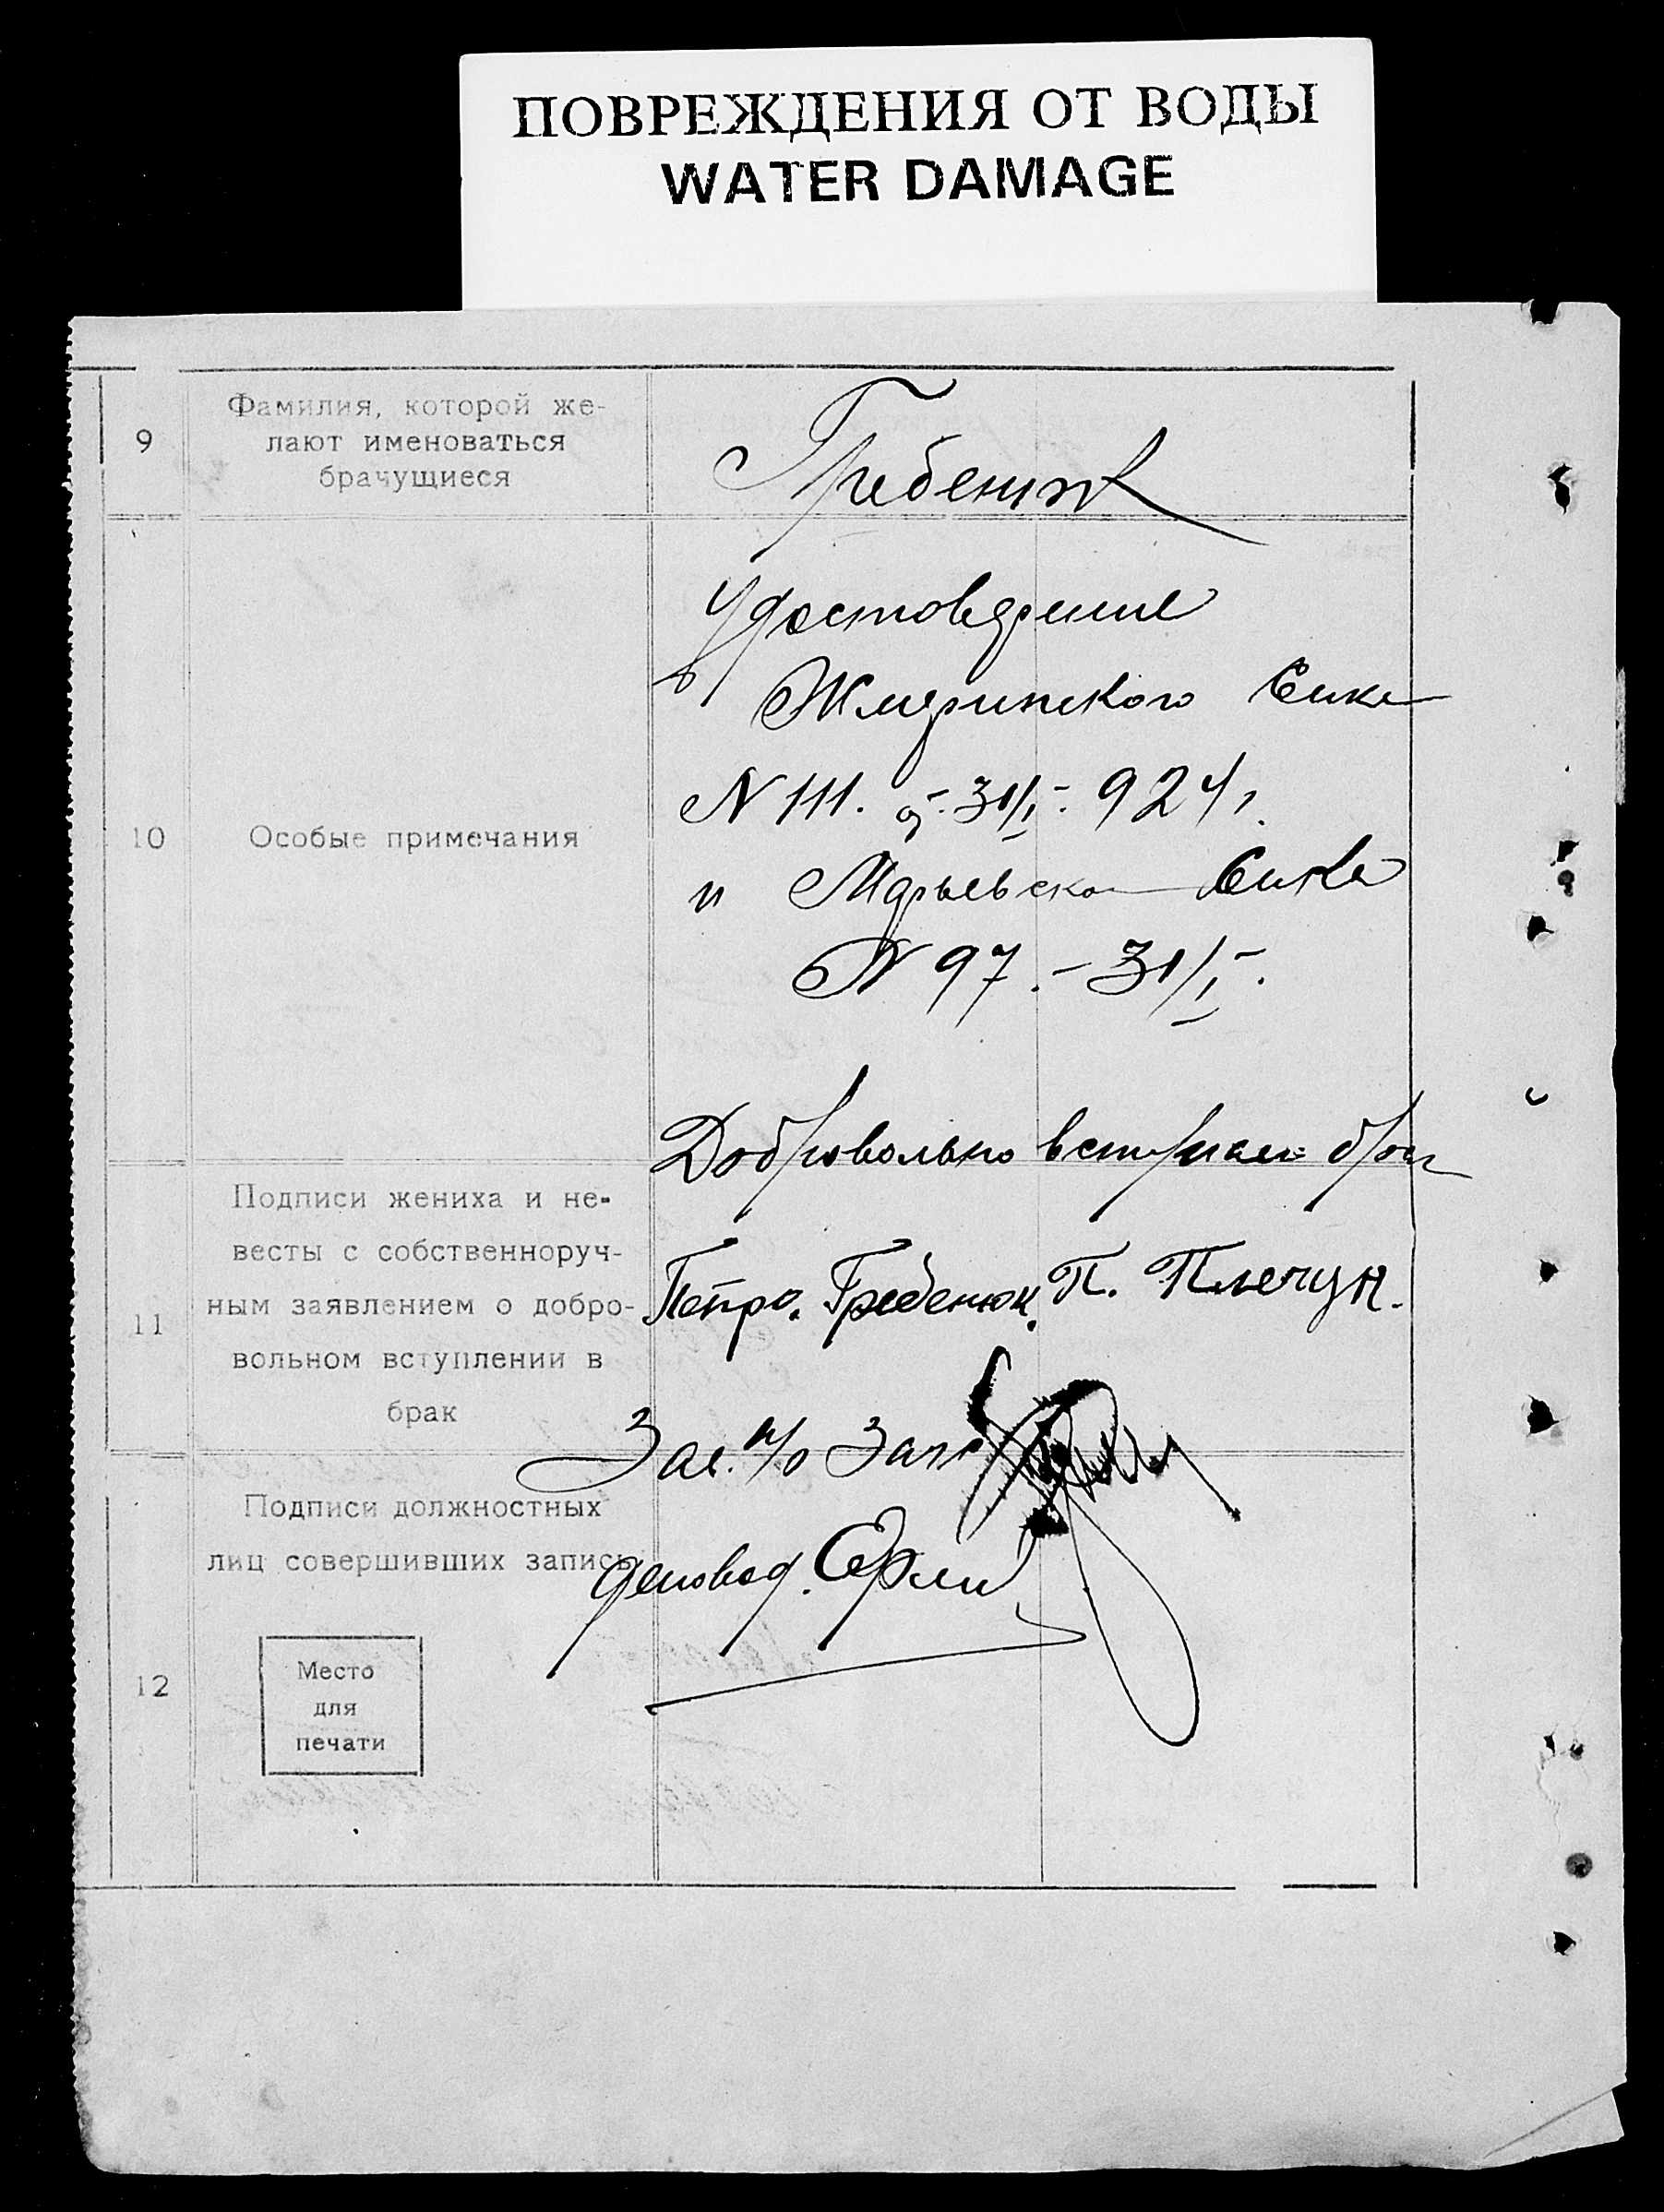 ПОВРЕЖДЕНИЯ ОТ ВОДЫ
WATER DAMAGE
9
Фамилия, которой же-
лают именоваться
брачущиеся
Гребенюк
10
Особые примечания
Удостоверение
N 111. 31/I 924 г.
и
N 97. - 31/I.
11
Подписи жениха и не-
весты с собственноруч-
ным заявлением о добро-
вольном вступлении в
брак
Добровольно вступаем брак
Петро. Гребенюк. П. Плечун.
12
Подписи должностных
лиц совершивших запись
Зав. п/о
деловод.
Место
для
печати